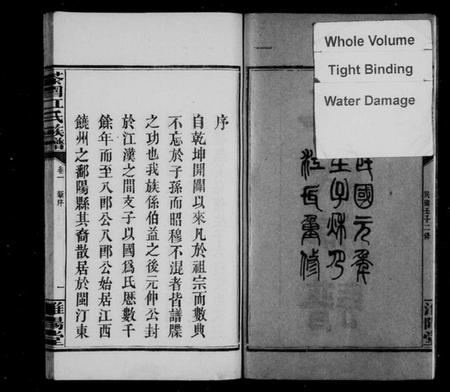 Whole Volume
Tight Binding
Water Damage
民國元年
壬子秋乃
江氏重修
民國壬子二修
淮陽堂
序
自乾坤開闢以來凡於祖宗而數典
不忘於子孫而昭穆不混者皆譜牒
之功也我族係伯益之後元仲公封
於江漢之間支子以國爲氏歷數千
餘年而至八郎公八郎公始居江西
饒州之鄱陽縣其裔散居於閩汀東
茶園江氏族譜
卷一
新序
一
淮陽堂